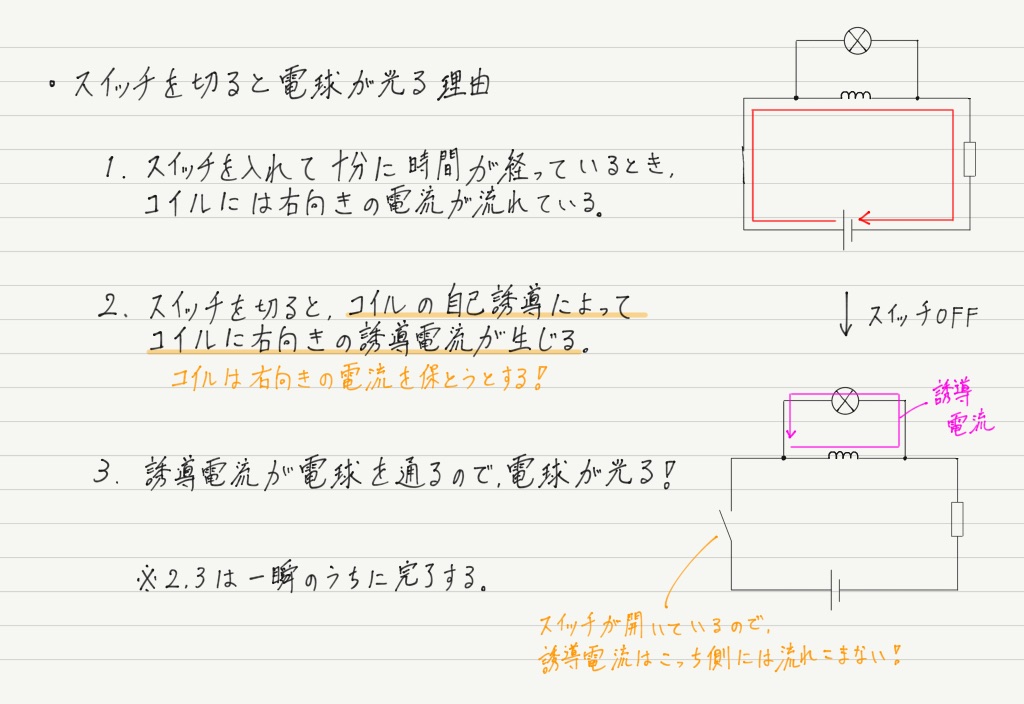 ・スイッチを切ると電球が光る理由
1. スイッチを入れて十分に時間が経っているとき,
コイルには右向きの電流が流れている。
2. スイッチを切ると, コイルの自己誘導によって
コイルに右向きの誘導電流が生じる。
コイルは右向きの電流を保とうとする!
3. 誘導電流が電球を通るので, 電球が光る!
※2.3は一瞬のうちに完了する。
スイッチOFF
誘導
電流
スイッチが開いているので,
誘導電流はこっち側には流れこまない!